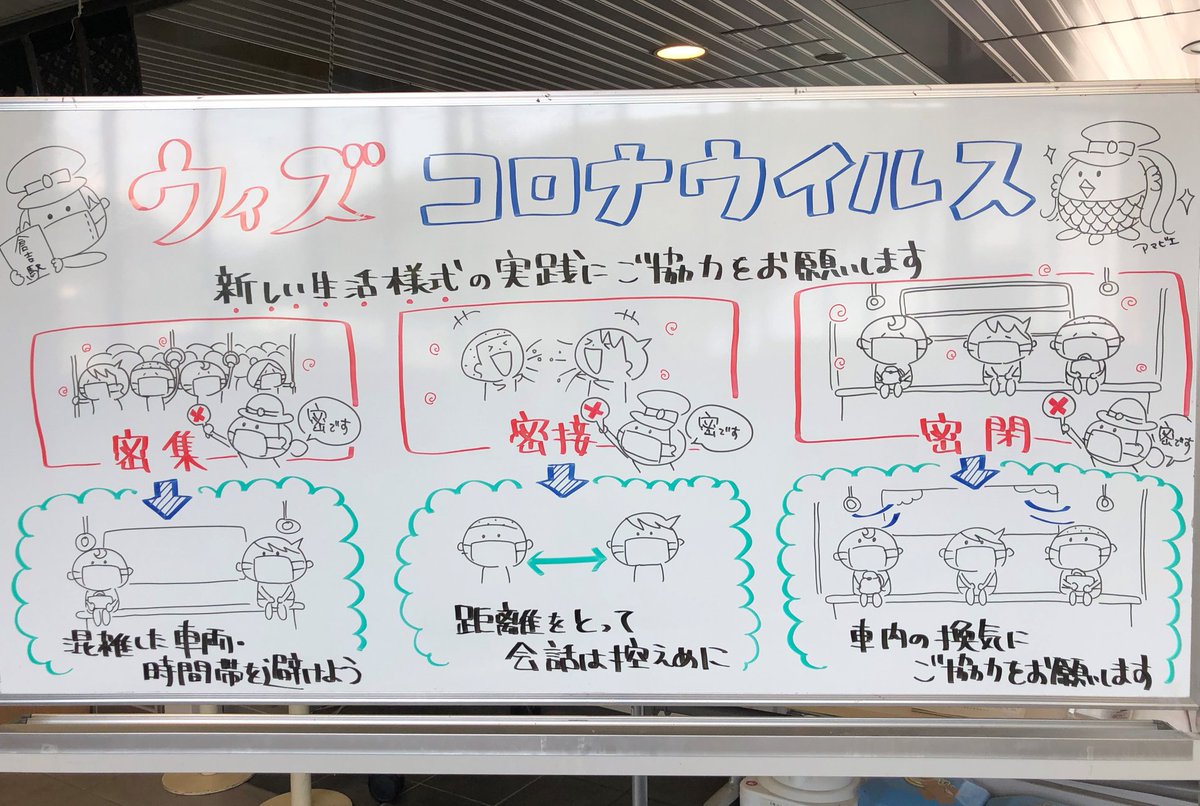 ウィズ コロナウイルス
倉吉駅
アマビエ
新しい生活様式の実践にご協力をお願いします
密集
密です
密接
密です
密閉
密です
混雑した車両・
時間帯を避けよう
距離をとって
会話は控えめに
車内の換気に
ご協力をお願いします